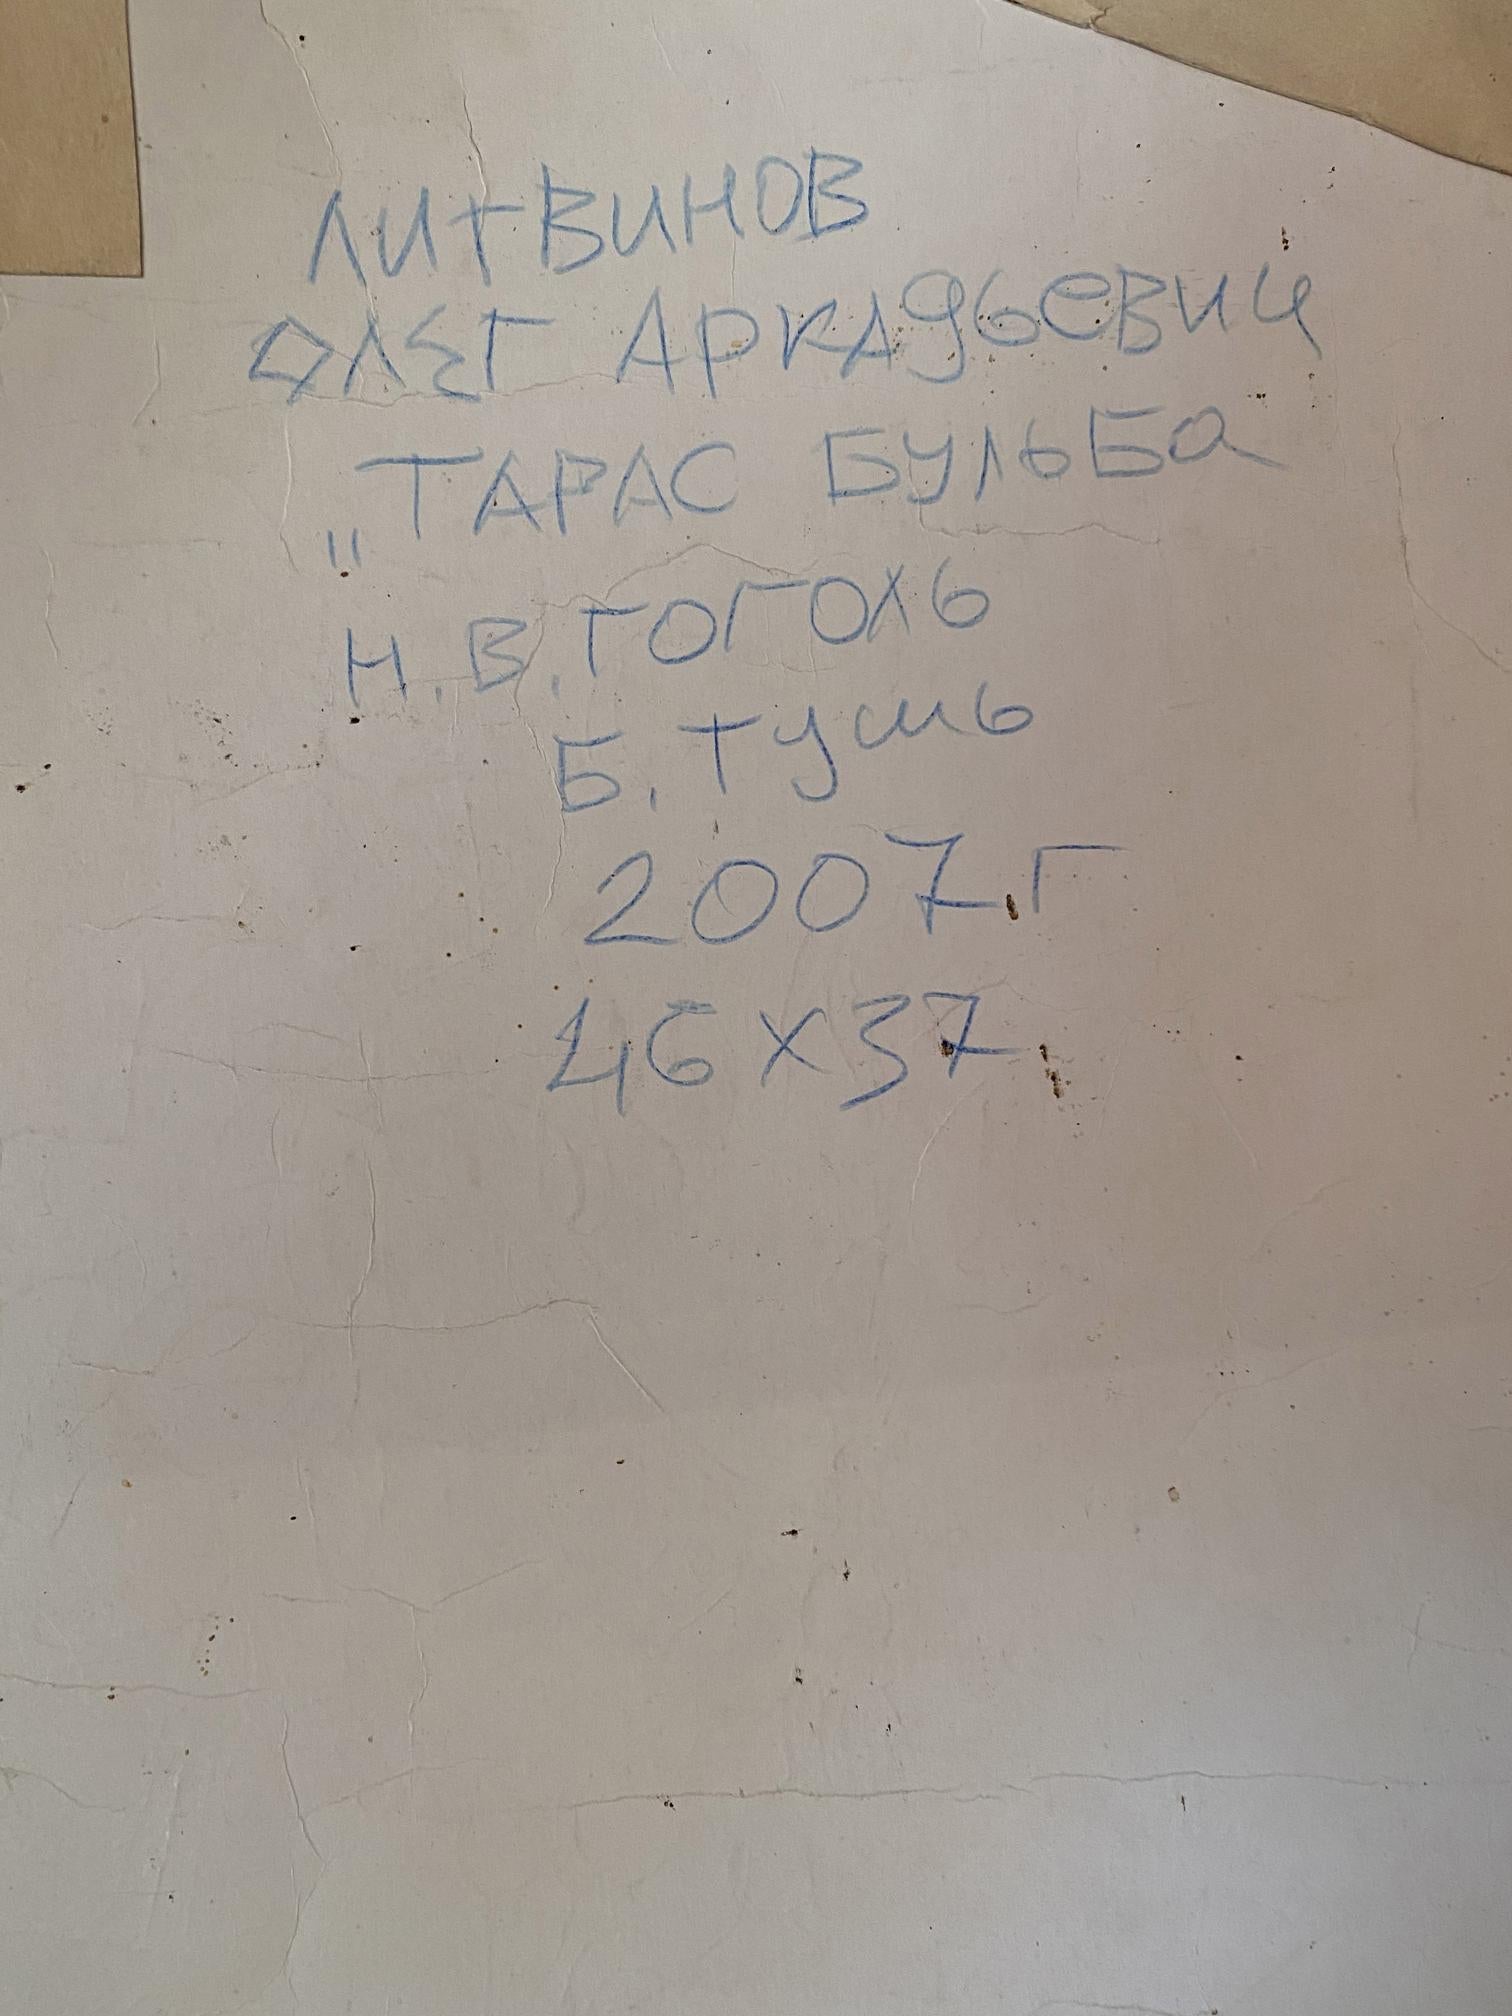 ЛИТВИНОВ
ОЛЕГ АРКАДЬЕВИЧ
„ТАРАС БУЛЬБА
Н.В.ГОГОЛЬ
Б. ТУШЬ
2007 г
46 х 37